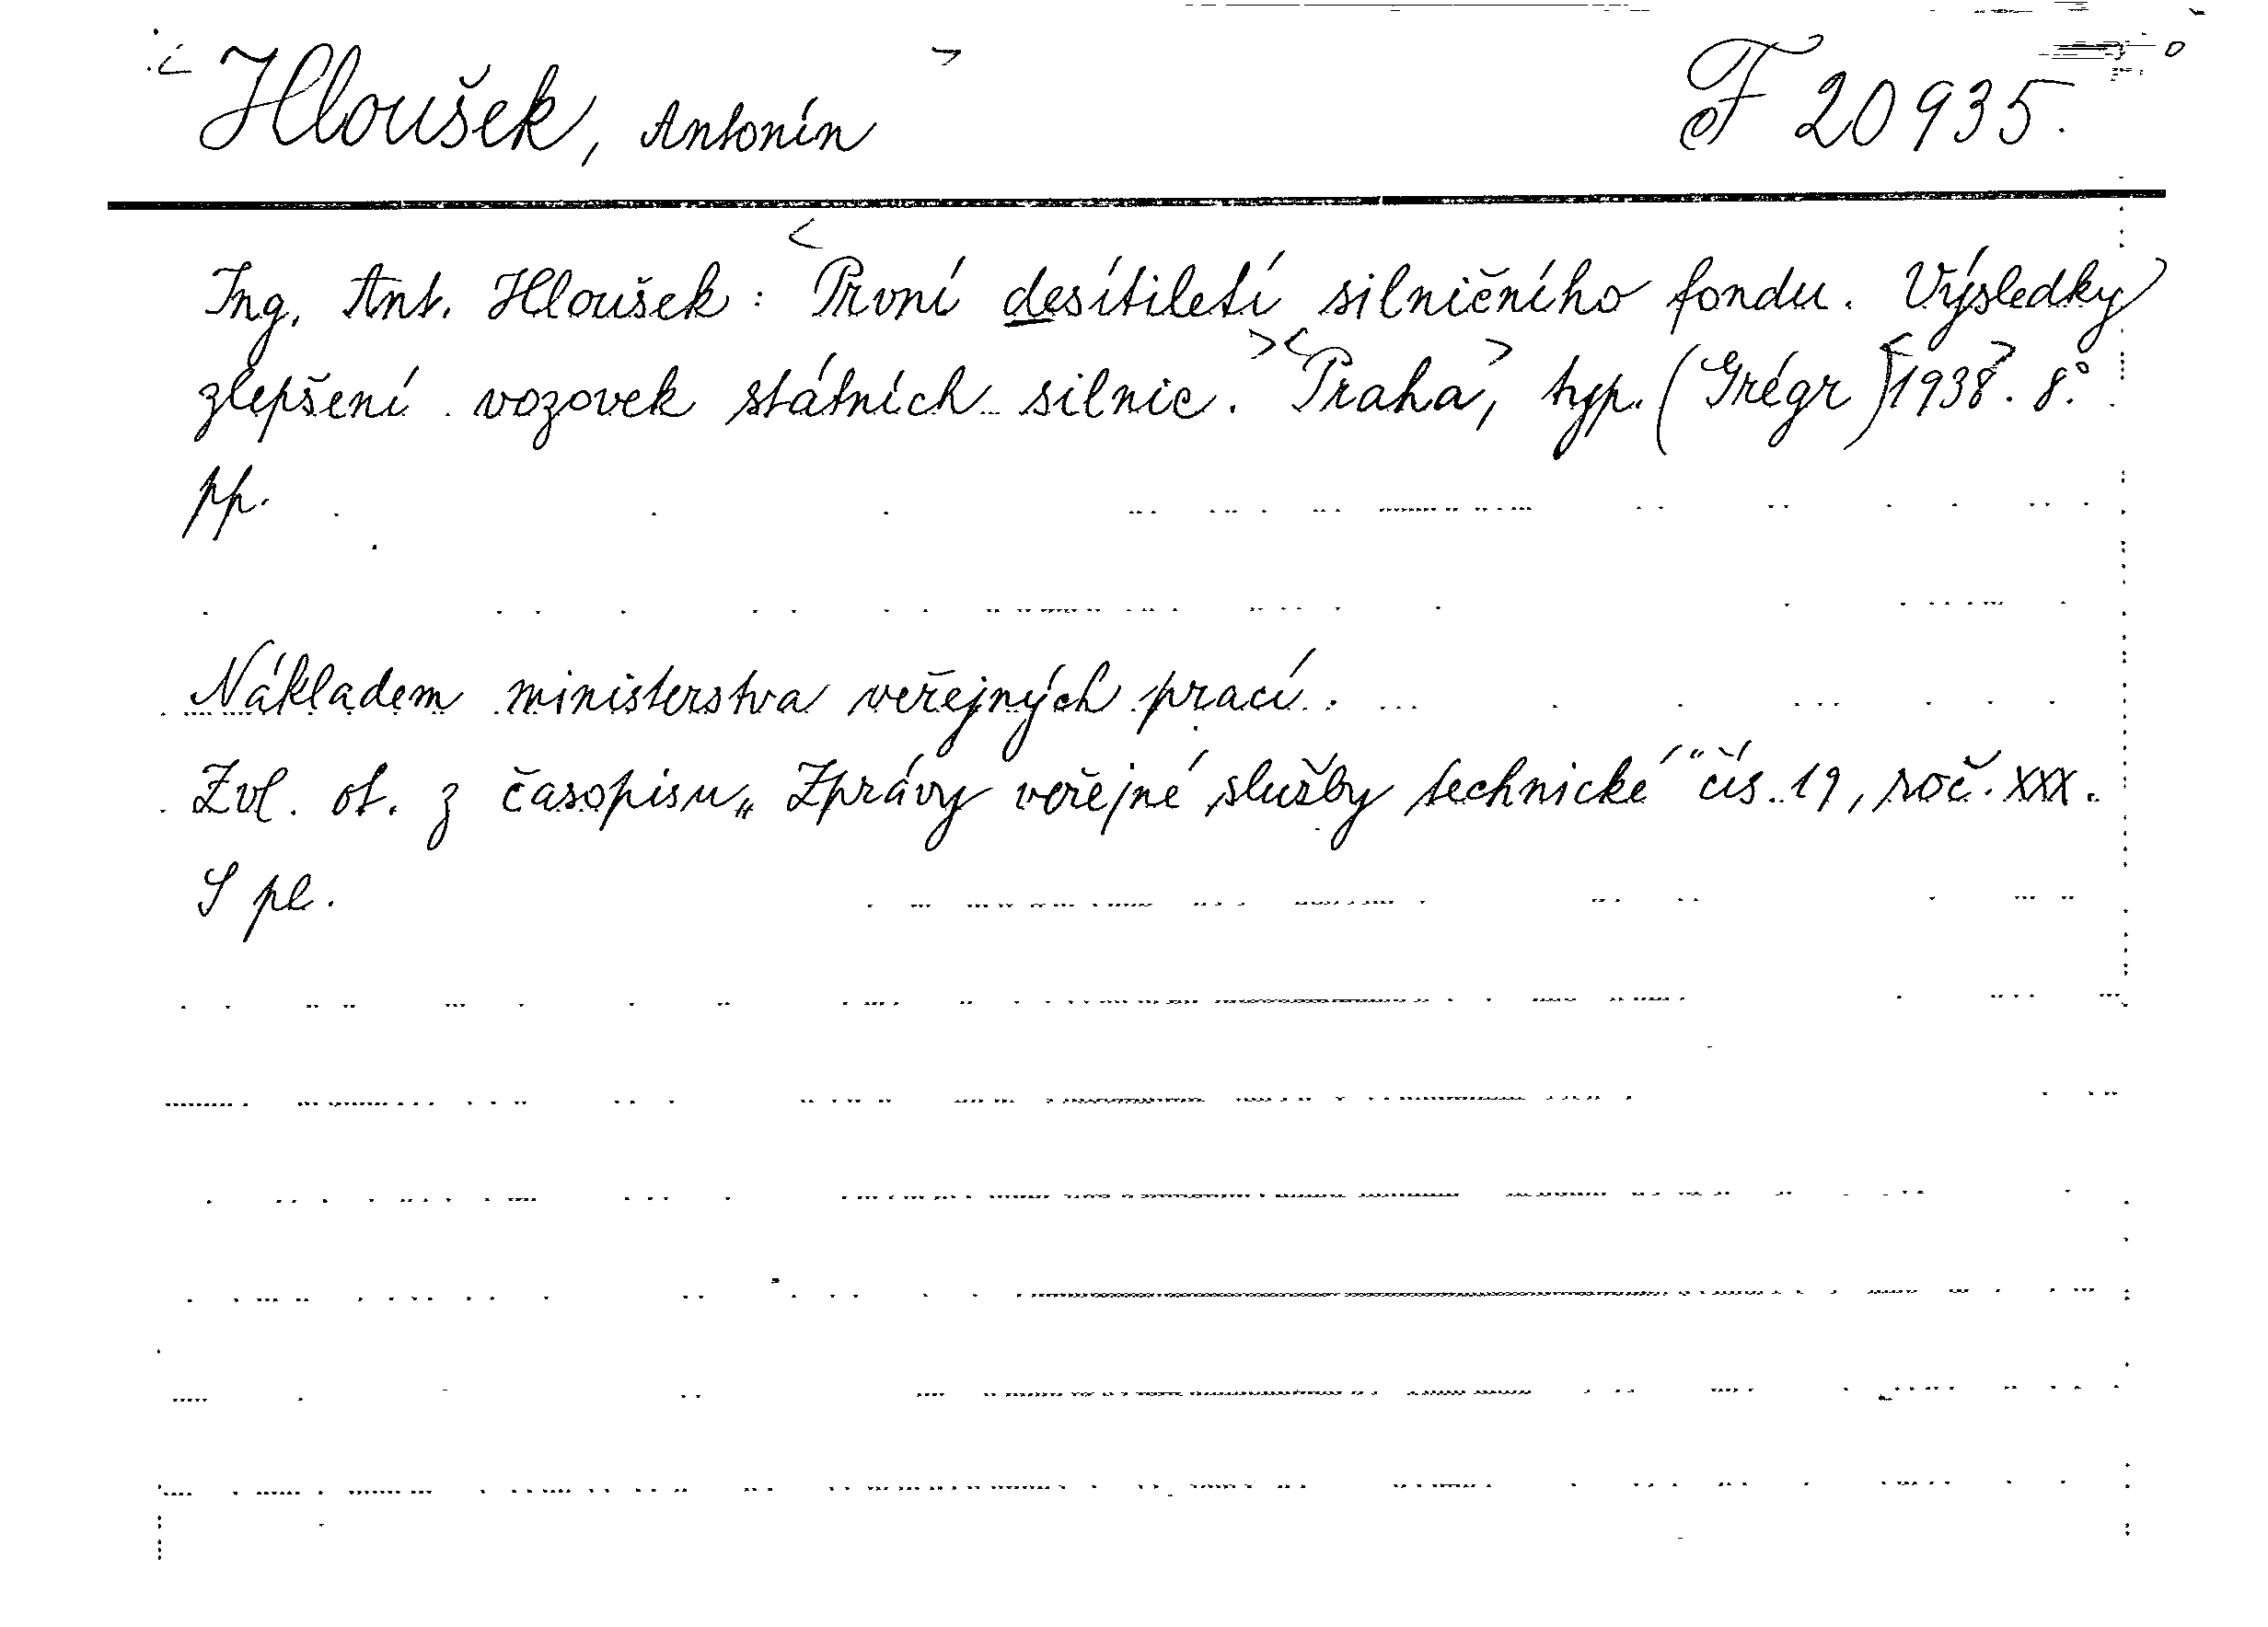 <Hloušek, Antonín> F 20935.
Ing. Ant. Hloušek: <První desítiletí silničního fondu. Výsledky
zlepšení vozovek státních silnic.><Praha>, typ. (Grégr)<1938>. 8.°
pp.
Nákladem ministerstva veřejných prací.
Zvl. ot. z časopisu „Zprávy veřejné služby technické“ čís. 19, roč. XXX.
S pl.